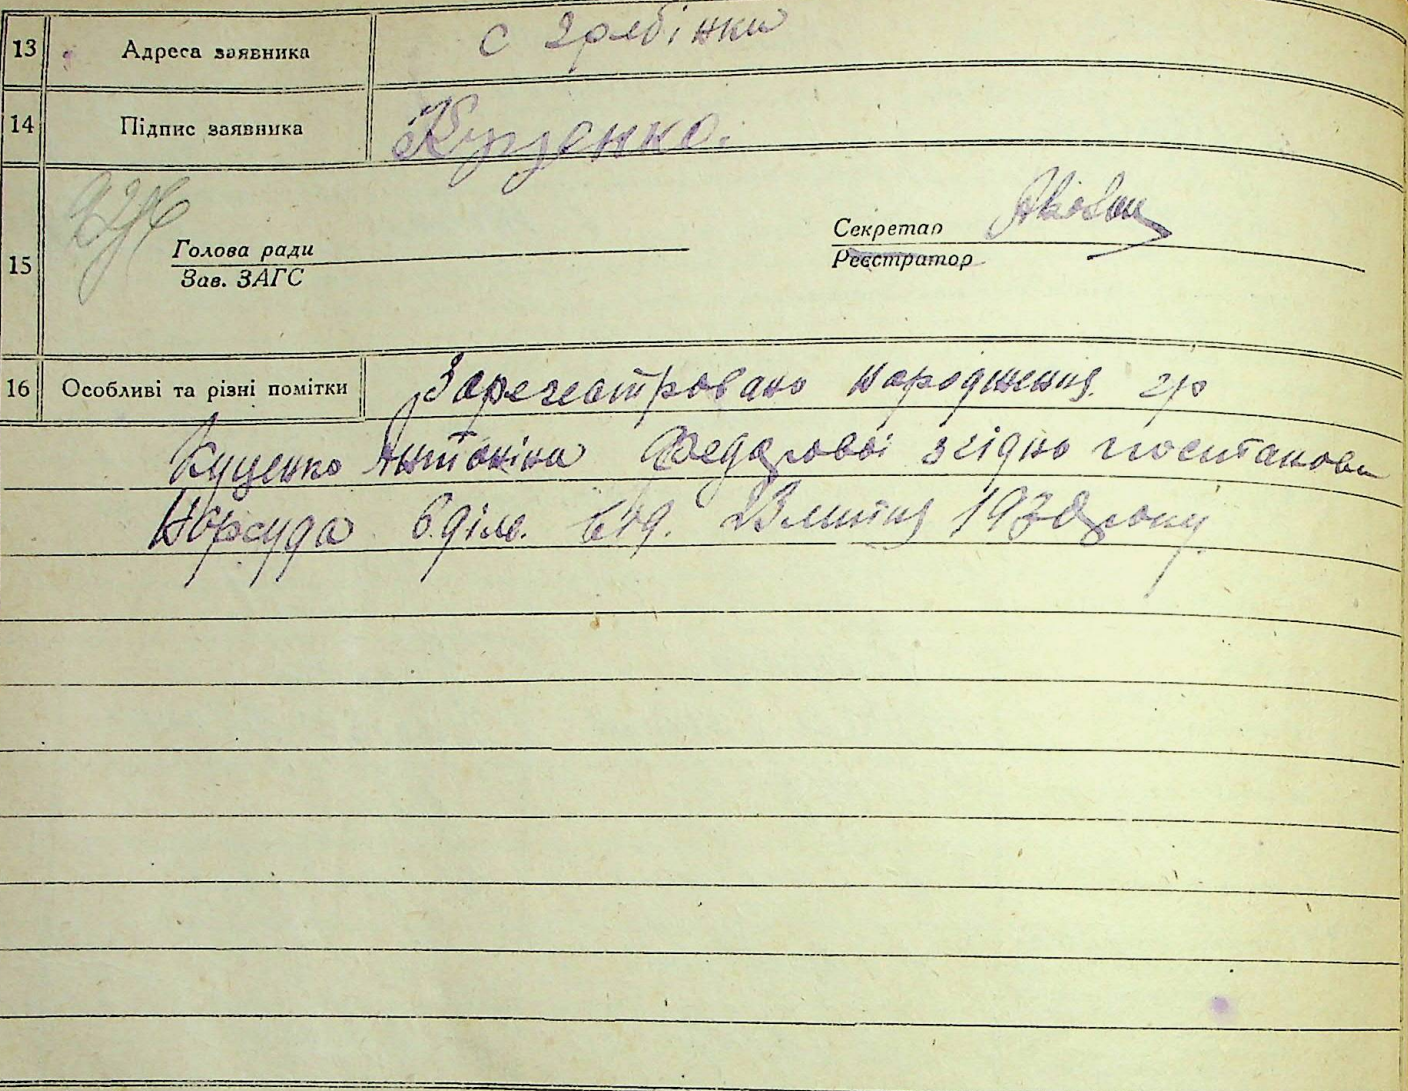 13 Адреса заявника с Гребінки
14 Підпис заявника Куценко.
15 Голова ради
Зав. ЗАГС
Секретар
Реєстратор
16 Особливі та різні помітки Зареєстровано народження гр
Куценко Антоніна Федорової згідно постанови
Нарсуда 6 діл. від. 23 липня 1938 року